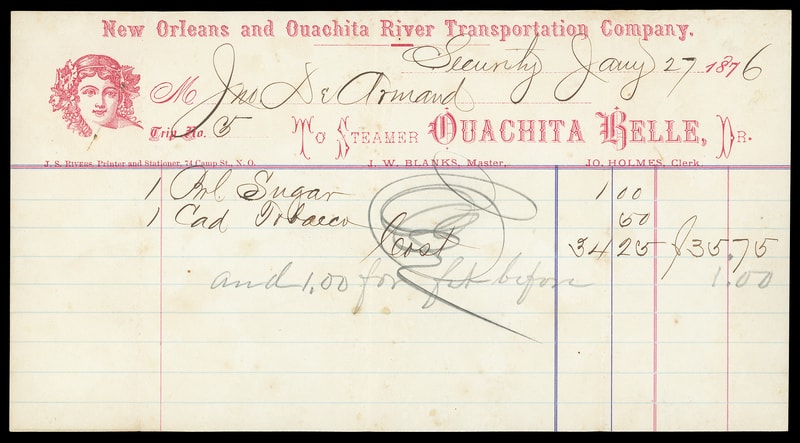 New Orleans and Ouachita River Transportation Company.
Security Jany 27 1876
M Jno De Armand
Trip No. 5 To Steamer Ouachita Belle, Dr.
J. S. Rivers, Printer and Stationer, 74 Camp St., N. O. J. W. BLANKS, Master, JO. HOLMES, Clerk
1 Brl Sugar 1 00
1 Cad Tobacco 50
Cost 34 25 $35.75
and 1.00 for frt before 1.00